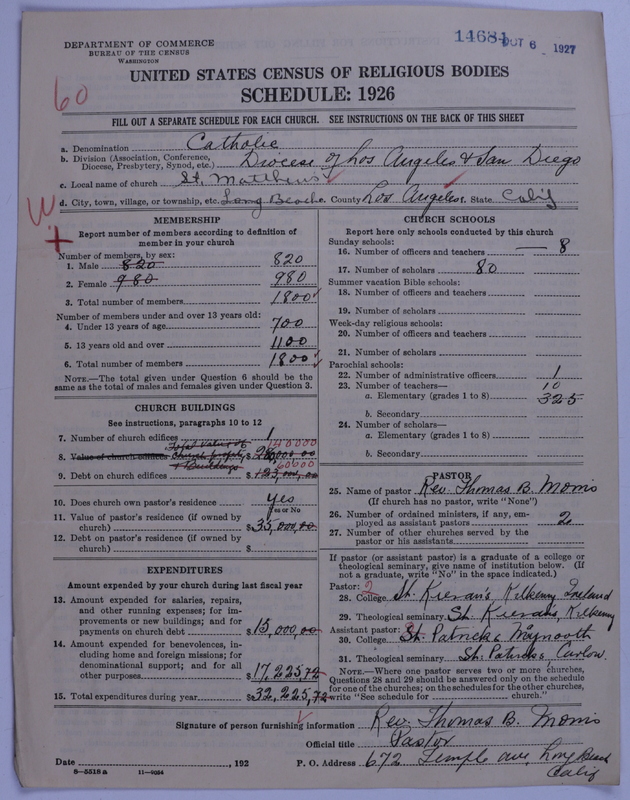 14684 OCT 6 1927
DEPARTMENT OF COMMERCE
BUREAU OF THE CENSUS
WASHINGTON
UNITED STATES CENSUS OF RELIGIOUS BODIES
SCHEDULE: 1926
60
FILL OUT A SEPARATE SCHEDULE FOR EACH CHURCH. SEE INSTRUCTIONS ON THE BACK OF THIS SHEET
a. Denomination Catholic
b. Division (Association, Conference, Diocese, Presbytery, Synod, etc.) Diocese of Los Angeles & San Diego
c. Local name of church St. Matthews
d. City, town, village, or township, etc. Long Beach. County Los Angeles. State Calif
W
MEMBERSHIP
Report number of members according to definition of member in your church
Number of members, by sex:
1. Male 820 820
2. Female 980 980
3. Total number of members 1800
Number of members under and over 13 years old:
4. Under 13 years of age 700
5. 13 years old and over 1100
6. Total number of members 1800
NOTE.—The total given under Question 6 should be the same as the total of males and females given under Question 3.
CHURCH BUILDINGS
See instructions, paragraphs 10 to 12
7. Number of church edifices 1
Total value of
8. Value of church edifices Church prop. $
& Buildings
9. Debt on church edifices $ 125,000,00 60000
10. Does church own pastor's residence? yes
Yes or No
11. Value of pastor's residence (if owned by church) $ 35,000,00
12. Debt on pastor's residence (if owned by church) $
EXPENDITURES
Amount expended by your church during last fiscal year
13. Amount expended for salaries, repairs, and other running expenses; for improvements or new buildings; and for payments on church debt $ 15,000,00
14. Amount expended for benevolences, including home and foreign missions; for denominational support; and for all other purposes $ 17,225 72
15. Total expenditures during year $ 32,225,72
CHURCH SCHOOLS
Report here only schools conducted by this church
Sunday schools:
16. Number of officers and teachers 8
17. Number of scholars 80
Summer vacation Bible schools:
18. Number of officers and teachers
19. Number of scholars
Week-day religious schools:
20. Number of officers and teachers
21. Number of scholars
Parochial schools:
22. Number of administrative officers 1
23. Number of teachers— 10
a. Elementary (grades 1 to 8) 325
b. Secondary
24. Number of scholars—
a. Elementary (grades 1 to 8)
b. Secondary
PASTOR
25. Name of pastor Rev. Thomas B. Morris
(If church has no pastor, write "None")
26. Number of ordained ministers, if any, employed as assistant pastors 2
27. Number of other churches served by the pastor or his assistants
If pastor (or assistant pastor) is a graduate of a college or theological seminary, give name of institution below. (If not a graduate, write "No" in the space indicated.)
Pastor: 2
28. College St. Kieran's Kilkenny Ireland
29. Theological seminary St. Kierans, Kilkenny
Assistant pastor:
30. College St. Patricks Maynooth
31. Theological seminary St. Patricks, Carlow.
NOTE.—Where one pastor serves two or more churches, Questions 28 and 29 should be answered only on the schedule for one of the churches; on the schedules for the other churches, write "See schedule for church."
Signature of person furnishing information Rev. Thomas B. Morris
Official title Pastor
Date , 192 P. O. Address 672 Temple ave, Long Beach Calif
8—5518 a 11—9054